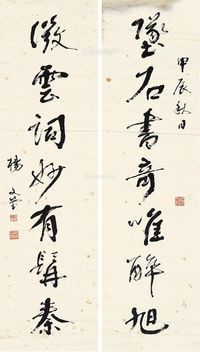 墜石書奇唯醉旭
甲辰秋日
微雲詞妙有髯秦
楊